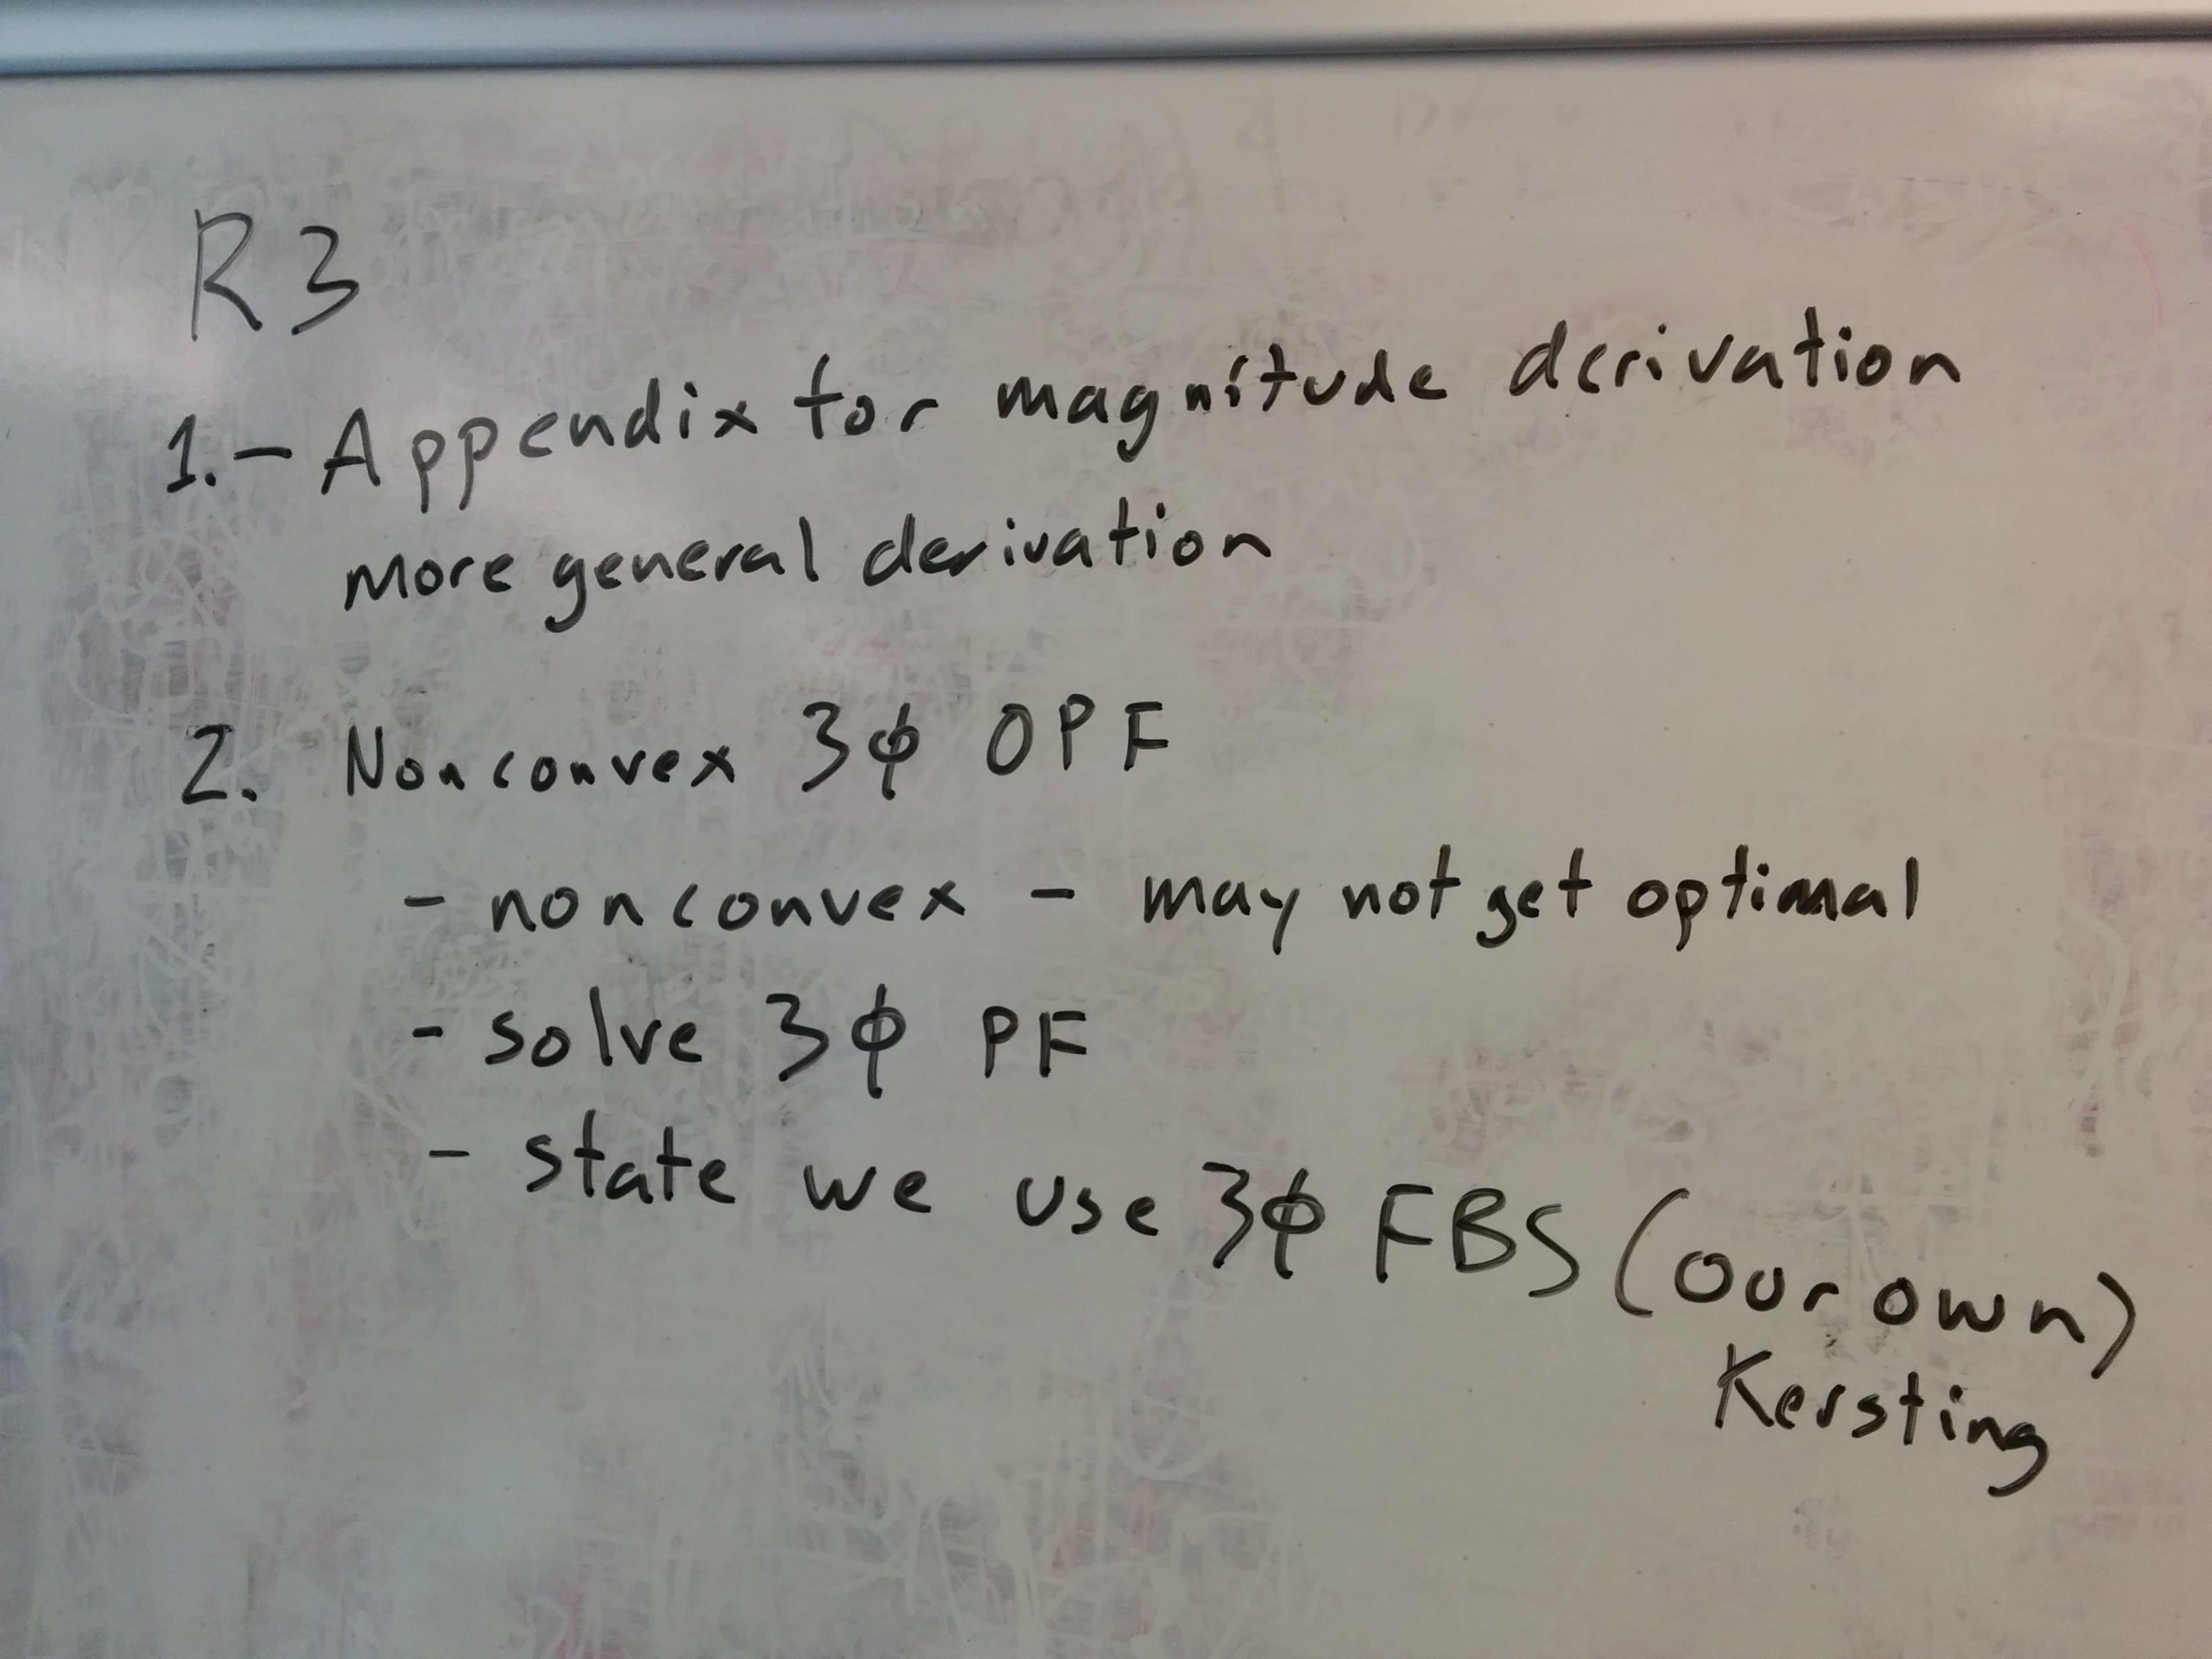 R3
1.- Appendix for magnitude derivation
more general derivation
2. Nonconvex 3ϕ OPF
- nonconvex - may not get optimal
- solve 3ϕ PF
- state we use 3ϕ FBS (our own)
Kersting